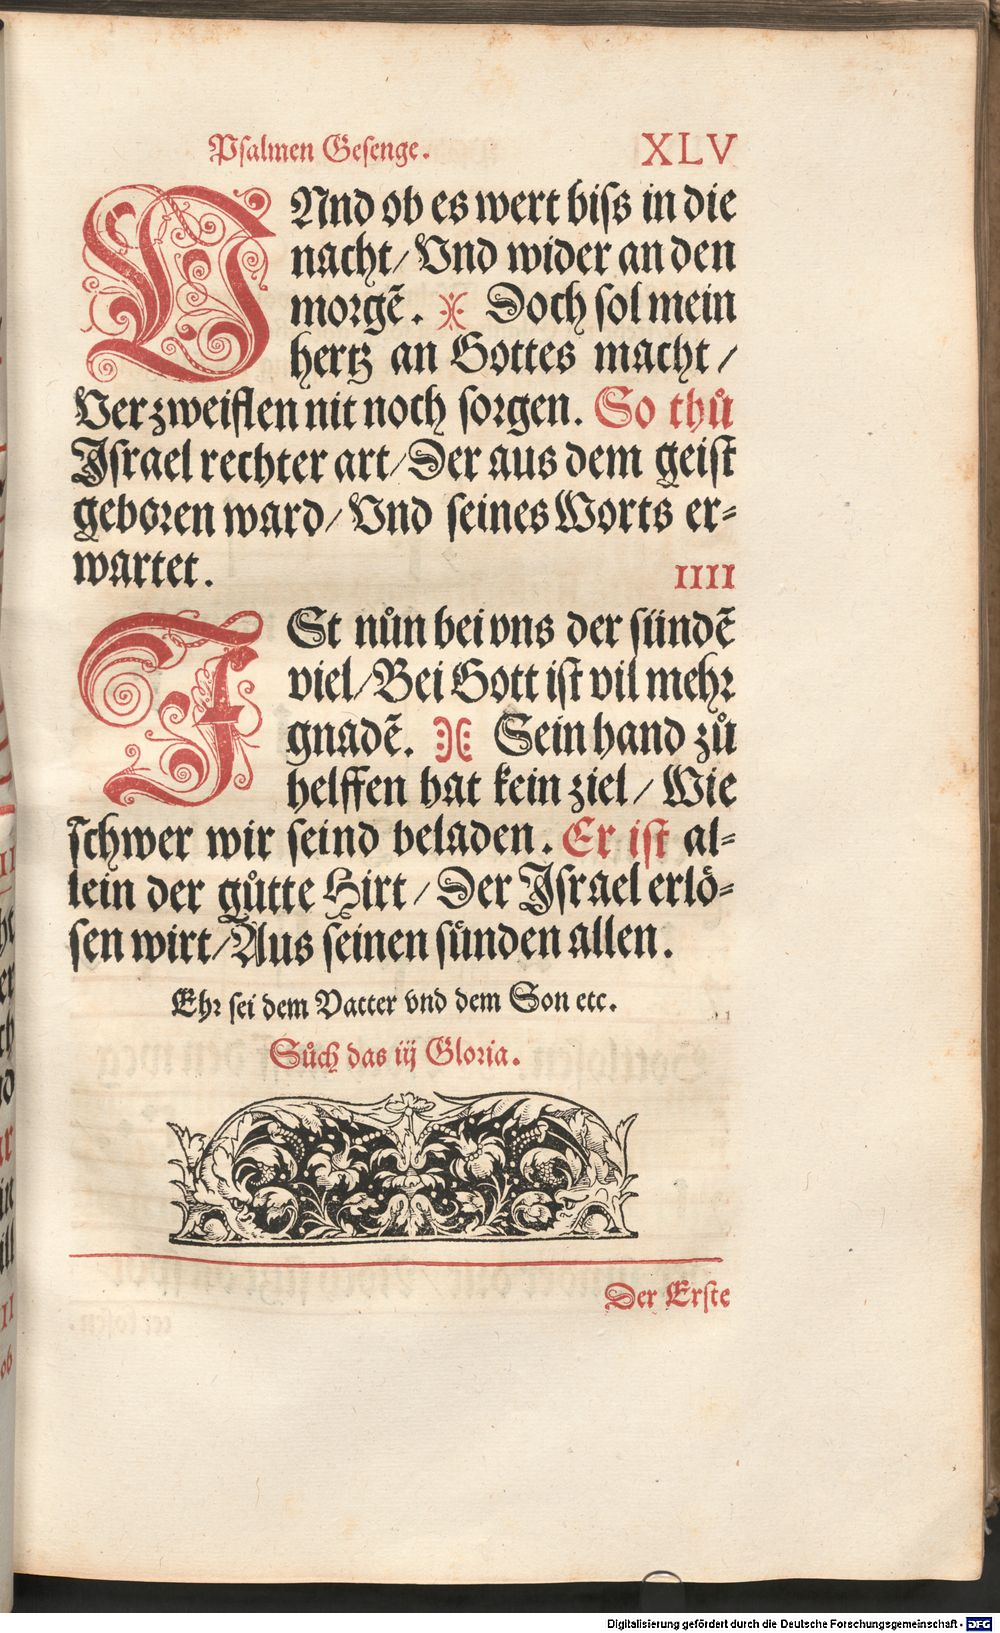 Psalmen Gesenge. XLV
VNnd ob es wert biſs in die
nacht/ Vnd wider an den
morgẽ. Doch sol mein
hertz an Gottes macht/
Verzweiflen nit noch sorgen. So thů
Jsrael rechter art/ Der aus dem geist
geboren ward/ Vnd seines Worts er-
wartet.
IIII
ISt nůn bei vns der sündẽ
viel/ Bei Gott ist vil mehr
gnadẽ. Sein hand zů
helffen hat kein ziel/ Wie
schwer wir seind beladen. Er ist al-
lein der gůtte Hirt/ Der Jsrael erlö-
sen wirt/ Aus seinen sünden allen.
Ehr sei dem Vatter vnd dem Son etc.
Sůch das iij Gloria.
Der Erste
Digitalisierung gefördert durch die Deutsche Forschungsgemeinschaft - DFG